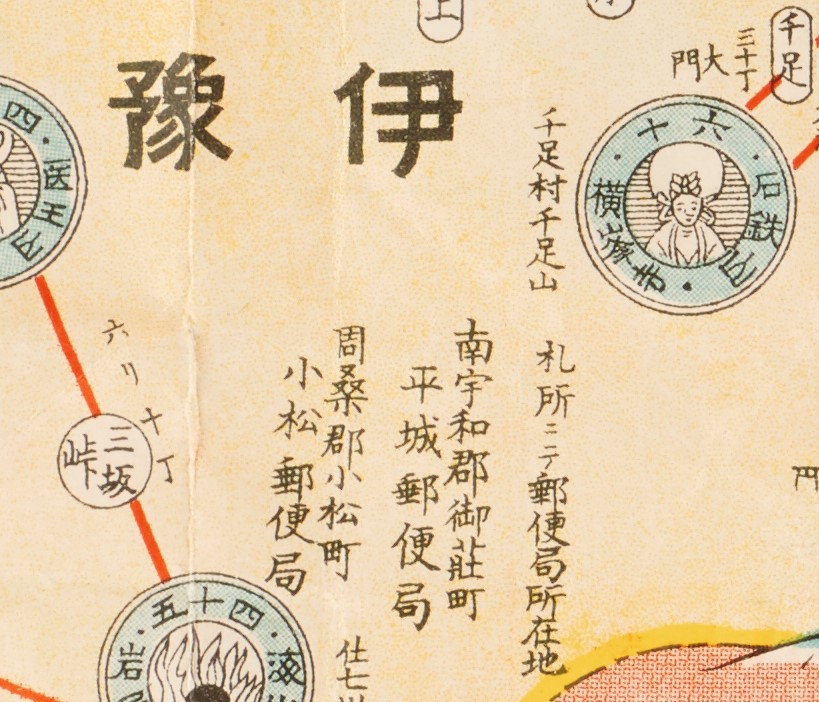 伊豫
上
千足
三十丁
大門
六十
石鉄山
横峰寺
千足村千足山
札所ニテ郵便局所在地
南宇和郡御荘町
平城郵便局
周桑郡小松町
小松郵便局
四
医王山
六リ十丁
三坂峠
四十五
海
岩
仕七